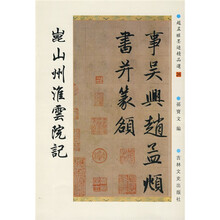 趙孟頫墨迹精品選
孫寶文 編
吉林文史出版社
事吴興趙孟頫
書并篆額
崑山州淮雲院記